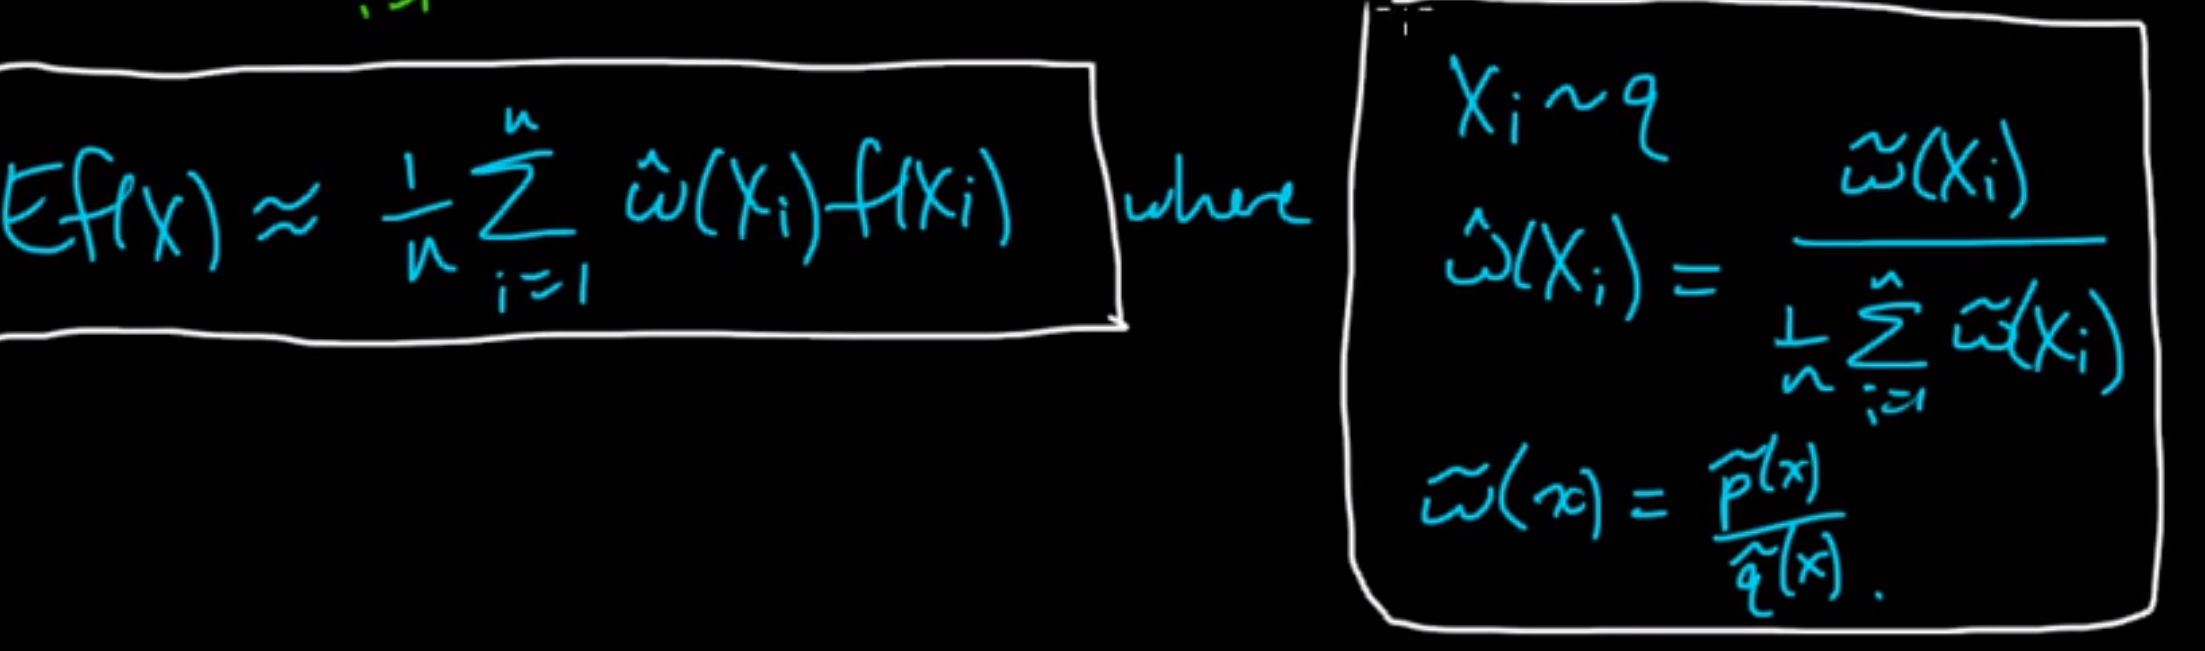 Ef(X) ≈ 1/n Σ_{i=1}^{n} ŵ(X_i) f(X_i) where
X_i ~ q
ŵ(X_i) = w̃(X_i) / (1/n Σ_{i=1}^{n} w̃(X_i))
w̃(x) = p̃(x) / q̃(x) .